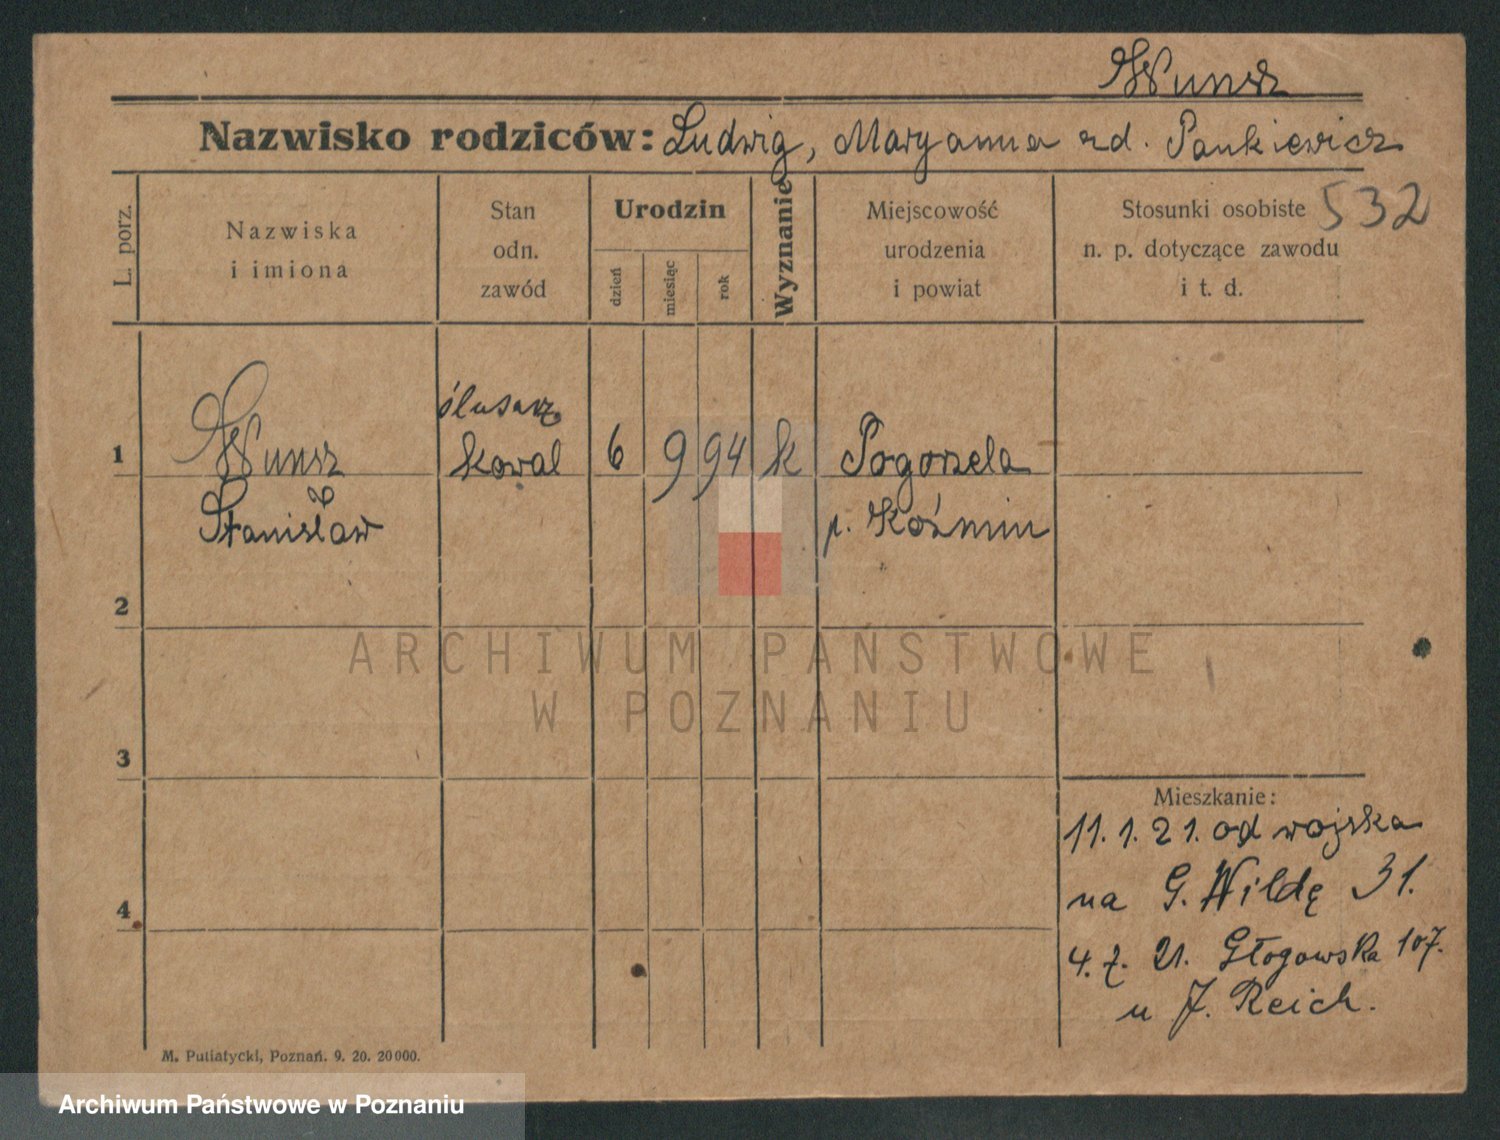 Wunsz
Nazwisko rodziców: Ludwig, Maryanna rd. Pankiewicz
532
L. porz.
Nazwiska
i imiona
Stan
odn.
zawód
Urodzin
dzień
miesiąc
rok
Wyznanie
Miejscowość
urodzenia
i powiat
Stosunki osobiste
n. p. dotyczące zawodu
i t. d.
ślusarz
1 Wunsz kowal 6 9 94 k Pogorzela
Stanisław p. Koźmin
2
ARCHIWUM PAŃSTWOWE
W POZNANIU
3
Mieszkanie:
11. 1. 21. od wojska
na G. Wildę 31.
4
4. 7. 21. Głogowska 107.
u J. Reich.
M. Putiatycki, Poznań. 9. 20. 20000.
Archiwum Państwowe w Poznaniu